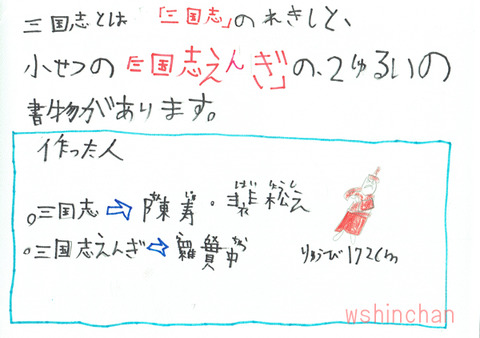 三国志とは「三国志」のれきしと、
小せつの「三国志えんぎ」の、2しゅるいの
書物があります。
作った人
三国志⇨陳寿・裴松之
三国志えんぎ⇨羅貫中
りゅうび172cm
wshinchan